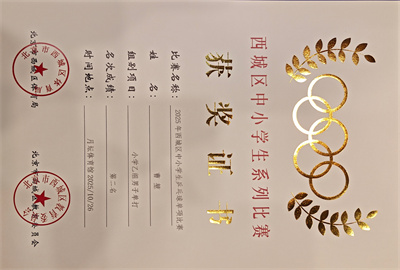 西城区中小学生系列比赛
获奖证书
比赛名称： 2025年西城区中小学生乒乓球单项比赛
姓 名： 曹
组别项目： 小学乙组男子单打
名次成绩： 第二名
时间地点： 月坛体育馆 2025/10/26
北京市西城区体育局 北京市西城区教育委员会